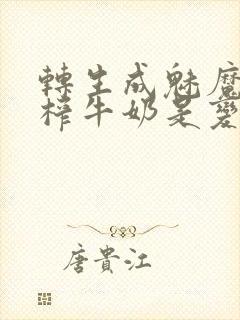 轉生成魅魔
榨牛奶是變
唐貴江